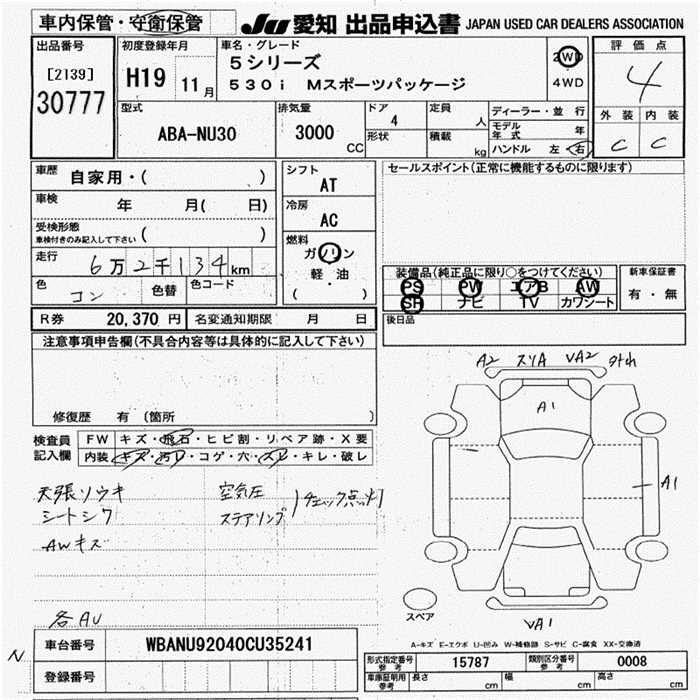 車内保管・守衛保管
JU 愛知 出品申込書 JAPAN USED CAR DEALERS ASSOCIATION
出品番号
[2139]
30777
初度登録年月
H19 11月
車名・グレード
5シリーズ
530i Mスポーツパッケージ
2WD
4WD
評価点
4
外装 内装
C C
型式
ABA-NU30
排気量
3000 CC
ドア
4
形状
定員
人
積載
kg
ディーラー・並行
モデル年式 年
ハンドル 左 右
車歴
自家用・( )
車検
年 月( 日)
受検形態
車検付きのみ記入して下さい ( )
走行
6万2千134km
色
コン
色替
色コード
シフト
AT
冷房
AC
燃料
ガソリン
軽・油
( )
セールスポイント(正常に機能するものに限ります)
装備品(純正品に限り○をつけてください)
PS PW エアB AW
SR ナビ TV カワシート
新車保証書
有・無
後日品
R券 20,370円 名変通知期限 月 日
注意事項申告欄(不具合内容等は具体的に記入して下さい)
修復歴 有 (箇所 )
検査員記入欄
FW キズ・飛石・ヒビ割・リペア跡・X要
内装 キズ・汚レ・コゲ・穴・スレ・キレ・破レ
天張ソウキ
シートシワ
AWキズ
空気圧
ステアリング
チェック点灯
各AU
A2 スリA VA2
A1
A1
VA1
スペア
A-キズ E-エクボ U-凹み W-補修跡 S-サビ C-腐食 XX-交換済
N
車台番号 WBANU92040CU35241
登録番号
形式指定番号参考 15787 類別区分番号参考 0008
車庫証明用参考 長さ cm 幅 cm 高さ cm